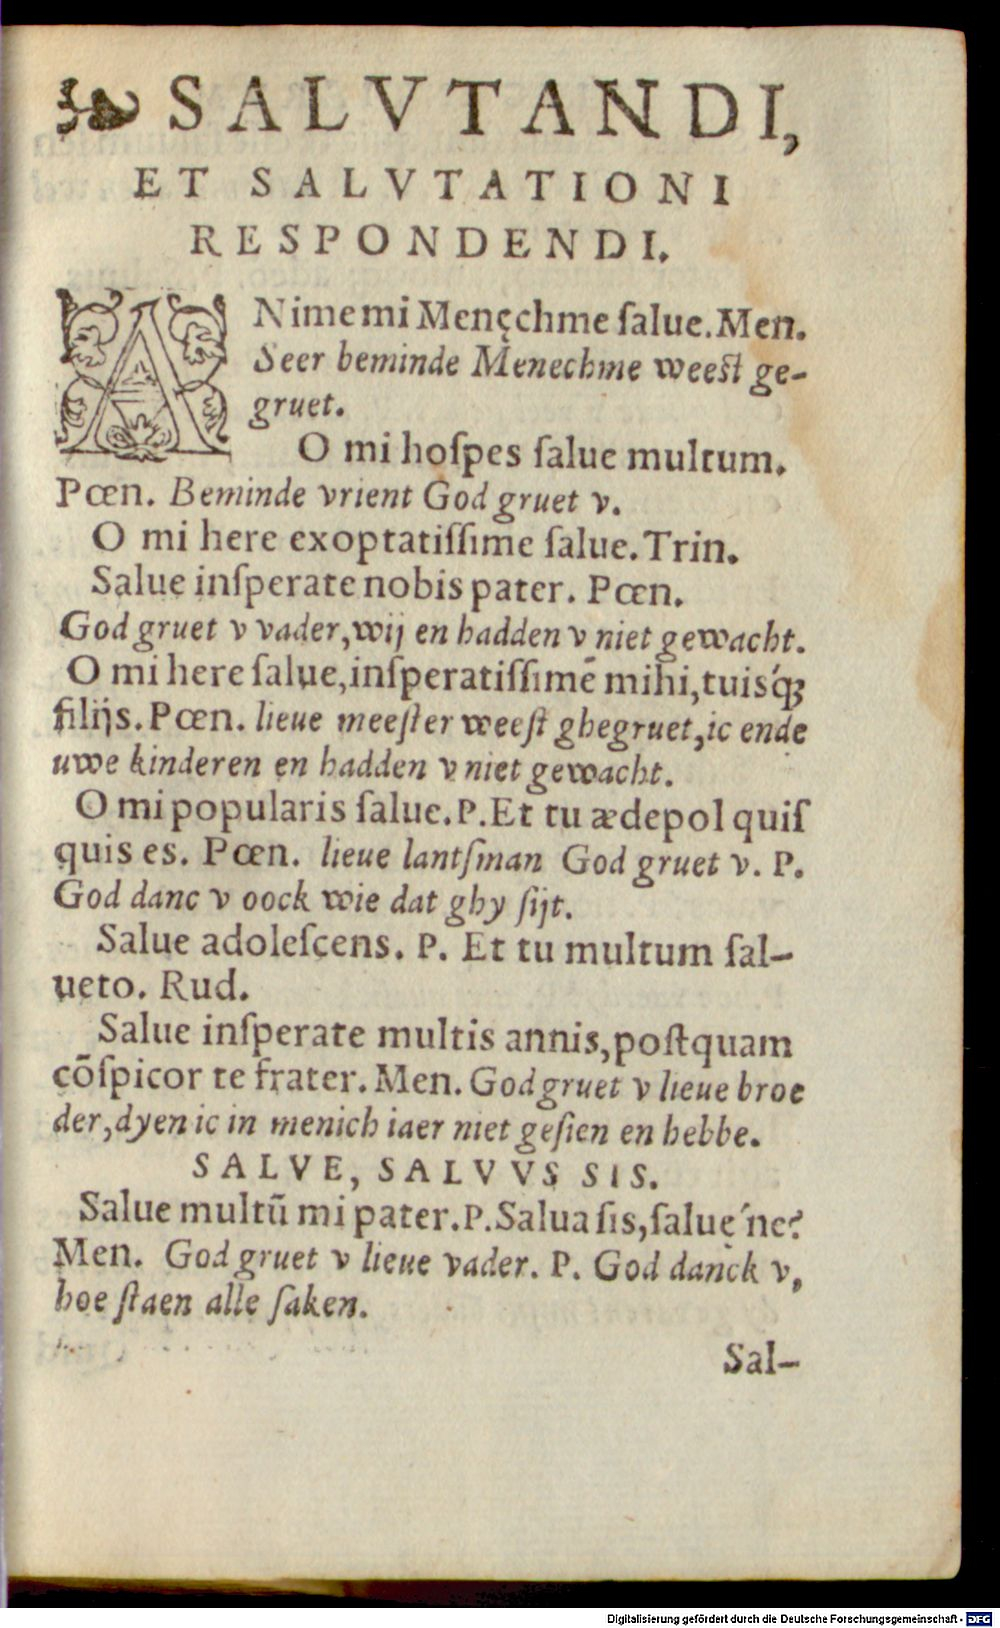 ❧ SALVTANDI,
ET SALVTATIONI
RESPONDENDI.
ANime mi Menęchme ſalue. Men.
Seer beminde Menechme weest ge-
gruet.
O mi hoſpes ſalue multum.
Pœn. Beminde vrient God gruet v.
O mi here exoptatiſſime ſalue. Trin.
Salue inſperate nobis pater. Pœn.
God gruet v vader, wij en hadden v niet gewacht.
O mi here ſalue, inſperatiſſimē mihi, tuisq́ꝫ
filijs. Pœn. lieue meeſter weeſt ghegruet, ic ende
uwe kinderen en hadden v niet gewacht.
O mi popularis ſalue. P. Et tu ædepol quiſ
quis es. Pœn. lieue lantſman God gruet v. P.
God danc v oock wie dat ghy ſijt.
Salue adoleſcens. P. Et tu multum ſal-
ueto. Rud.
Salue inſperate multis annis, poſtquam
cōſpicor te frater. Men. God gruet v lieue broe
der, dyen ic in menich iaer niet geſien en hebbe.
SALVE, SALVVS SIS.
Salue multū mi pater. P. Salua ſis, ſaluę´ne?
Men. God gruet v lieue vader. P. God danck v,
hoe ſtaen alle ſaken.
Sal-
Digitalisierung gefördert durch die Deutsche Forschungsgemeinschaft - DFG